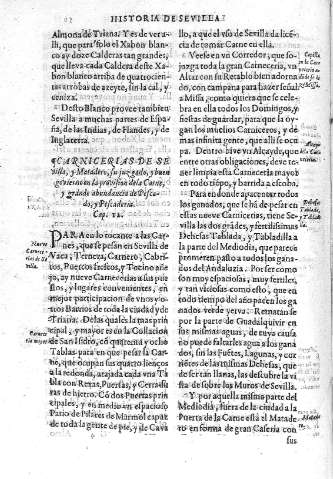 HISTORIA DE SEVILLA
Almona de Triana. Y es de verali,
que para solo el Xabon blanco
ay doze Calderas tan grandes,
que lleva cada Caldera deste Xabon
blanco arriba de quatrocientas
arrobas de azeyte, sin la cal, y
ceniza.
Desto Blanco provee tambien
Sevilla a muchas partes de España,
de las Indias, de Flandes, y de
Inglaterra.
CARNICERIAS DE SEvilla,
y Matadero, su juzgado, y buen
govierno en la provision de la Carne,
y grande abundancia de Pescado,
y Pescaderia.
Cap. 12.
PARA en lo tocante a las Carnes,
que se pesan en Sevilla de
Vaca, Ternera, Carnero, Cabritos,
Puercos frescos, y Tocino añejo,
ay nueve Carnecerias a sus puestos,
y lugares convenientes, en
mejor participacion de unos y otros
Barrios de toda la ciudad y de
Triana. De las quales la mas principal,
y mayor es en la Collacion
de San Isidro, cō quarenta y ocho
Tablas para en que pesar la Carne,
que ocupan sus quatro lienços
a la redonda, atajada cada una Tabla
con Rexas, Puertas, y Cerraduras
de hierro. Cō dos Puertas principales,
y en medio un espacioso
Patio de Pilares de Marmol capaz
de toda la gente de pie, y de Cavallo,
a que el uso de Sevilla da licencia
de tomar Carne en ella.
Veese en un Corredor, que sojuzga
toda la gran Carneceria, un
Altar con su Retablo bien adornado,
con campana para hazer señal
a Missa, como quiera que se celebra
en ella todos los Domingos, y
fiestas de guardar, para que la oygan
los muchos Carniceros, y demas
infinita gente, que alli se ocupa.
Dentro bive un Alcayde, que
entre otras obligaciones, deve tener
limpia esta Carniceria mayor
en todo tiempo, y barrida a escoba.
Para en donde apacentar todos
los ganados, que se hā de pesar en
estas nueve Carnicerias, tiene Sevilla
las dos grandes, y fertilissimas
Dehesas Tablada, y Tabladilla a
la parte del Mediodia, que parece
prometen pasto a todos los ganados
del Andaluzia. Por ser como
son muy espaciosas, muy fertiles,
y tan viciosas como esto, que en
todo tiempo del año pacen los ganados
verde yervo. Rematanse
por la parte de Guadalquivir en
sus mismas aguas, de cuya causa
no puede faltarles agua a los ganados,
sin las Fuētes, Lagunas, y corrientes
destas mismas Dehesas, que
de ser tan llanas, las descubre la vista
de sobre los Muros de Sevilla.
Y por aquella misma parte del
Mediodia, fuera de la ciudad a la
Puerta de la Carne esta el Matadero
en forma de gran Caseria con
sus